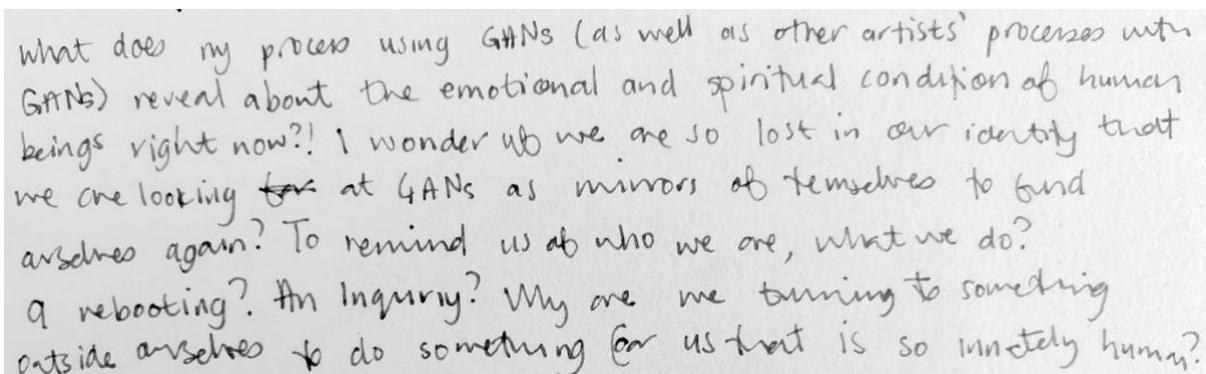 what does my process using GANs (as well as other artists' processes with
GANs) reveal about the emotional and spiritual condition of human
beings right now?! I wonder if we are so lost in our identity that
we are looking for at GANs as mirrors of temselves to find
ourselves again? To remind us of who we are, what we do?
A rebooting? An Inquriy? Why are we turning to something
outside ourselves to do something for us that is so innately human?